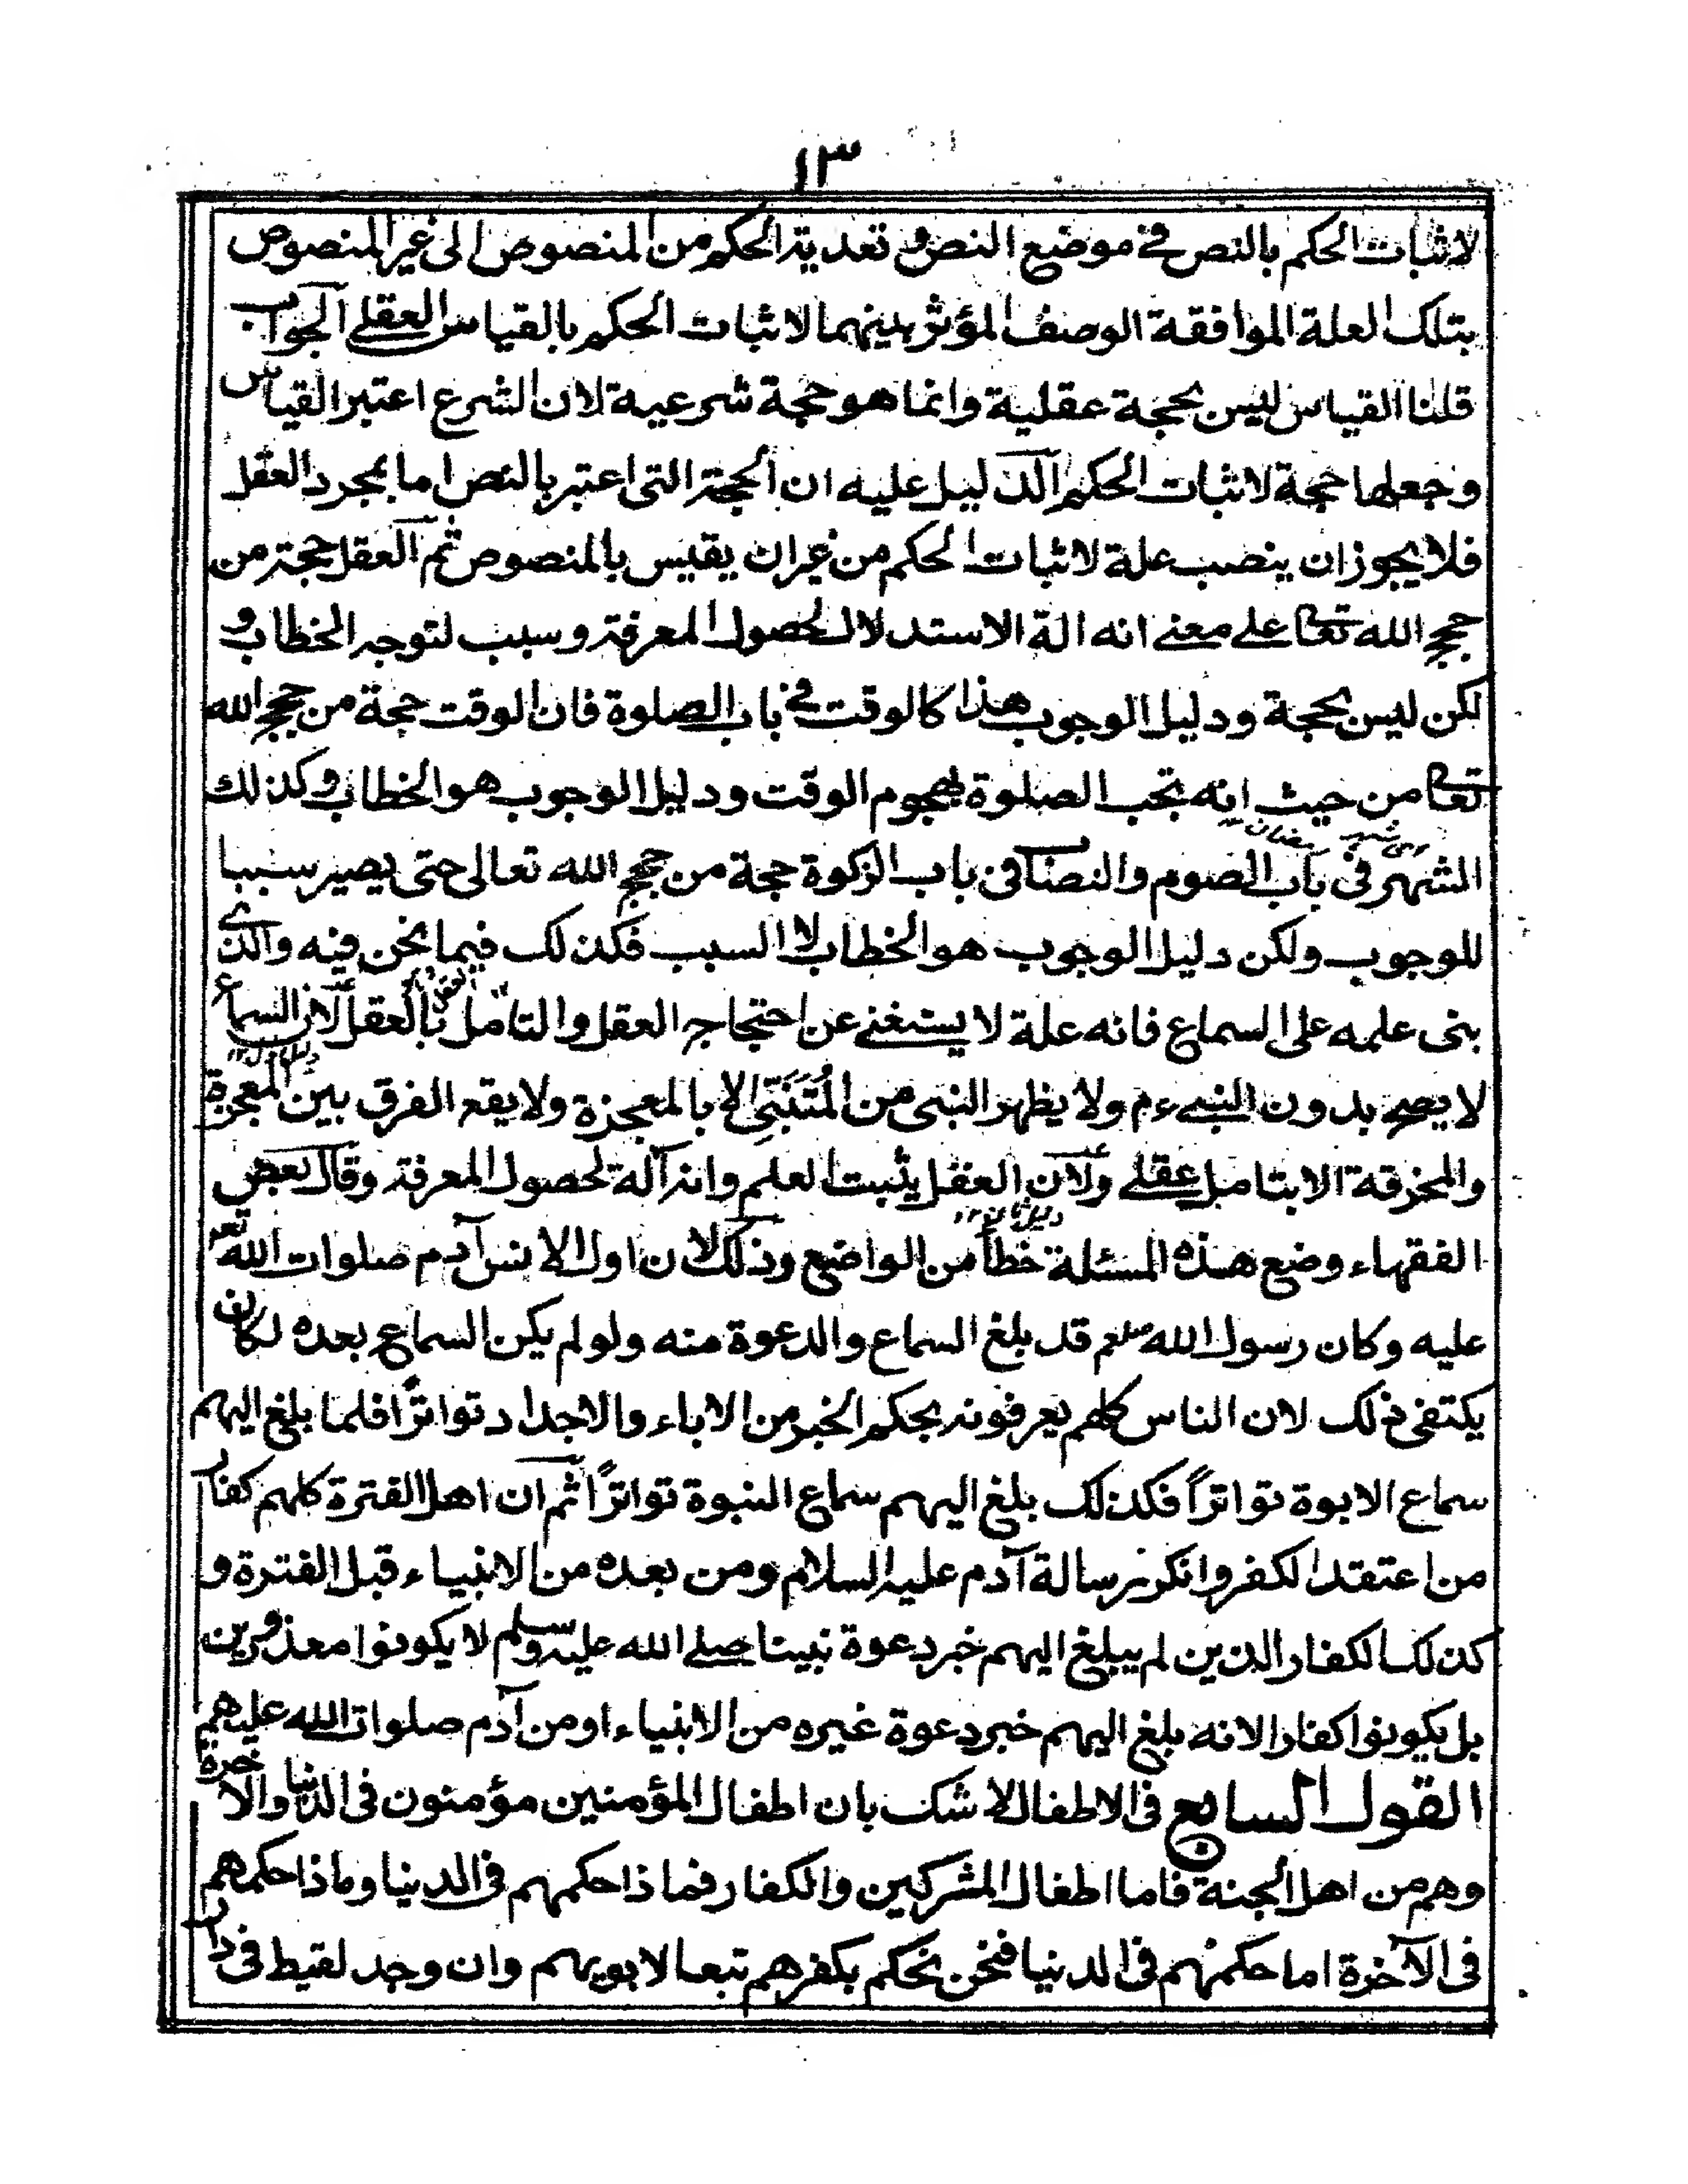 ١٣
لاثبات الحكم بالنص فى موضع النص و تعدية الحكم من المنصوص الى غير المنصوص
بتلك العلة الموافقة الوصف المؤثر بينهما لاثبات الحكم بالقياس العقلى الجواب
قلنا القياس ليس بحجة عقلية وانما هو حجة شرعية لان الشرع اعتبر القياس
وجعلها حجة لاثبات الحكم الدليل عليه ان الحجة التى اعتبر بالنص اما بمجرد العقل
فلا يجوز ان ينصب علة لاثبات الحكم من غير ان يقيس بالمنصوص ثم العقل حجة من
حجج الله تعا على معنى انه الة الاستدلال لحصول المعرفة وسبب لتوجه الخطاب و
لكن ليس بحجة ودليل الوجوب هذا كالوقت فى باب الصلوة فان الوقت حجة من حجج الله
تعا من حيث انه تجب الصلوة بهجوم الوقت ودليل الوجوب هو الخطاب وكذلك
الشهر فى باب الصوم والنصاب فى باب الزكوة حجة من حجج الله تعالى حتى يصير سببا
للوجوب ولكن دليل الوجوب هو الخطاب لا السبب فكذلك فيما نحن فيه والذى
بنى علمه على السماع فانه علة لا يستغنى عن احتجاجه العقل والتامل بالعقل لان السماع
لا يصح بدون النبى ءم ولا يظهر النبى من المُتَنَبِّى الا بالمعجزة ولا يقع الفرق بين المعجزة
والمخرقة الا بتامل عقلى ولان العقل يثبت العلم وانه آلة لحصول المعرفة وقال بعض
دليل ثان ١٢
الفقهاء وضع هذه المسئلة خطأ من الواضع وذلك لان اول الانس آدم صلوات الله
عليه وكان رسول الله صلعم قد بلغ السماع والدعوة منه ولو لم يكن السماع بعده لكان
يكتفى ذلك لان الناس كلهم يعرفونه بحكم الخبر من الاباء والاجداد تواتراً فلما بلغ اليهم
سماع الابوة تواتراً فكذلك بلغ اليهم سماع النبوة تواتراً ثم ان اهل الفترة كلهم كفار
من اعتقد الكفر وانكر رسالة آدم عليه السلام ومن بعده من الانبياء قبل الفترة و
كذلك الكفار الذين لم يبلغ اليهم خبر دعوة نبينا صلى الله عليه وسلم لا يكونوا معذورين
بل يكونوا كفارا لانه بلغ اليهم خبر دعوة غيره من الانبياء او من آدم صلوات الله عليهم
القول السابع فى الاطفال لا شك بان اطفال المؤمنين مؤمنون فى الدنيا والاخرة
وهم من اهل الجنة فاما اطفال المشركين والكفار فماذا حكمهم فى الدنيا وماذا حكمهم
فى الآخرة اما حكمهم فى الدنيا فنحن نحكم بكفرهم تبعا لابويهم وان وجد لقيط فى دار